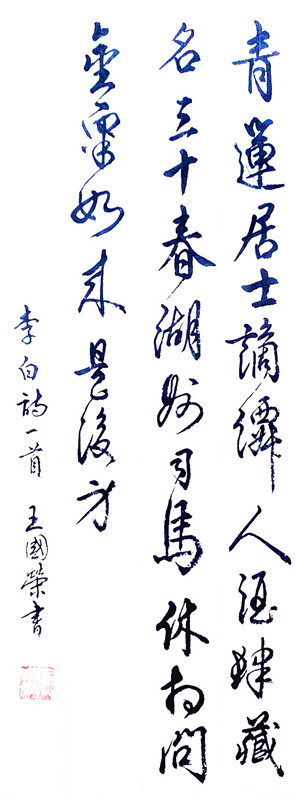 青蓮居士謫僊人酒肆藏
名三十春湖州司馬休相問
金粟如來是後身
李白詩一首 王國榮書